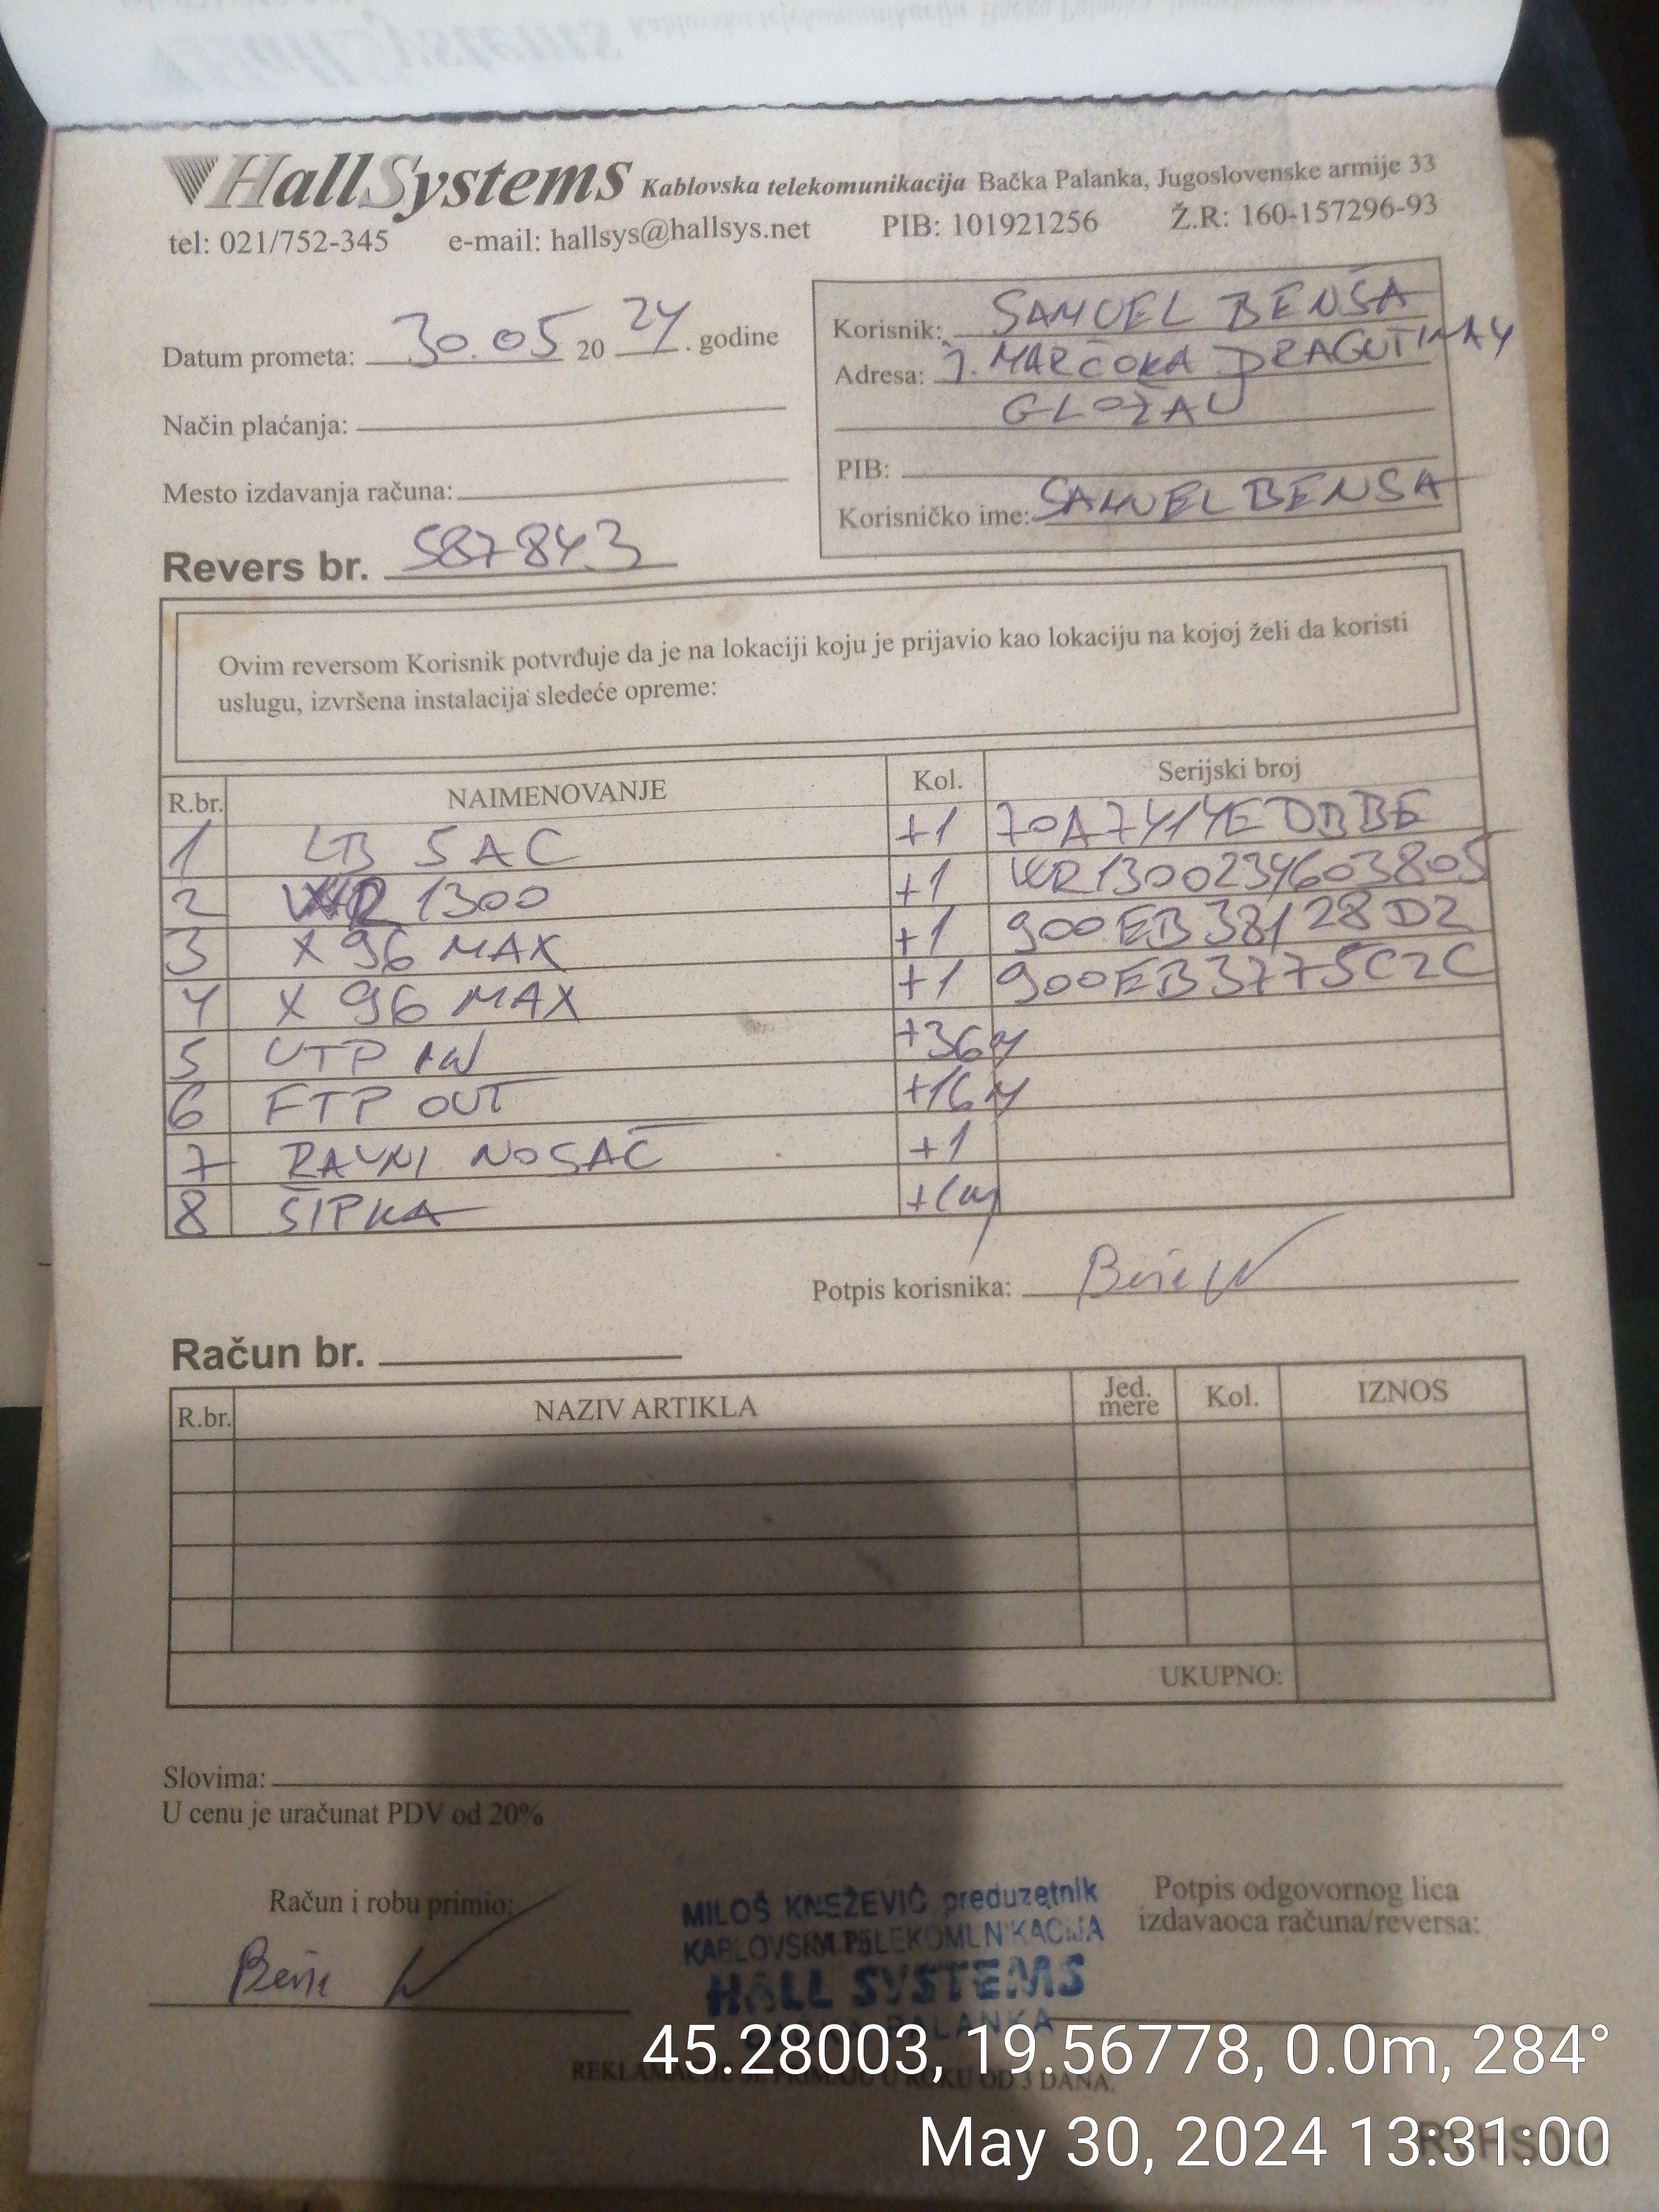 HallSystems Kablovska telekomunikacija Bačka Palanka, Jugoslovenske armije 33
tel: 021/752-345 e-mail: hallsys@hallsys.net PIB: 101921256 Ž.R: 160-157296-93
Datum prometa: 30.05 20 24. godine
Način plaćanja:
Mesto izdavanja računa:
Korisnik: SAMUEL BENŠA
Adresa: J. MARČOKA DRAGUTINA 4
GLOŽAN
PIB:
Korisničko ime: SAMUELBENSA
Revers br. 587843
Ovim reversom Korisnik potvrđuje da je na lokaciji koju je prijavio kao lokaciju na kojoj želi da koristi
uslugu, izvršena instalacija sledeće opreme:
R.br. NAIMENOVANJE Kol. Serijski broj
1 LB 5AC +1 70A7414EDBBE
2 WR 1300 +1 WR1300234603805
3 X 96 MAX +1 900EB38128D2
4 X 96 MAX +1 900EB3775C2C
5 UTP IN +36M
6 FTP OUT +16M
7 RAVNI NOSAČ +1
8 ŠIPKA
Potpis korisnika:
Račun br.
R.br. NAZIV ARTIKLA Jed. mere Kol. IZNOS
UKUPNO:
Slovima:
U cenu je uračunat PDV od 20%
Račun i robu primio:
MILOŠ KNEŽEVIĆ preduzetnik
KABLOVSKA TELEKOMUNIKACIJA
HALL SYSTEMS
PALANKA
Potpis odgovornog lica
izdavaoca računa/reversa:
REKLAMACIJE SE PRIMAJU U ROKU OD 3 DANA.
45.28003, 19.56778, 0.0m, 284°
May 30, 2024 13:31:00